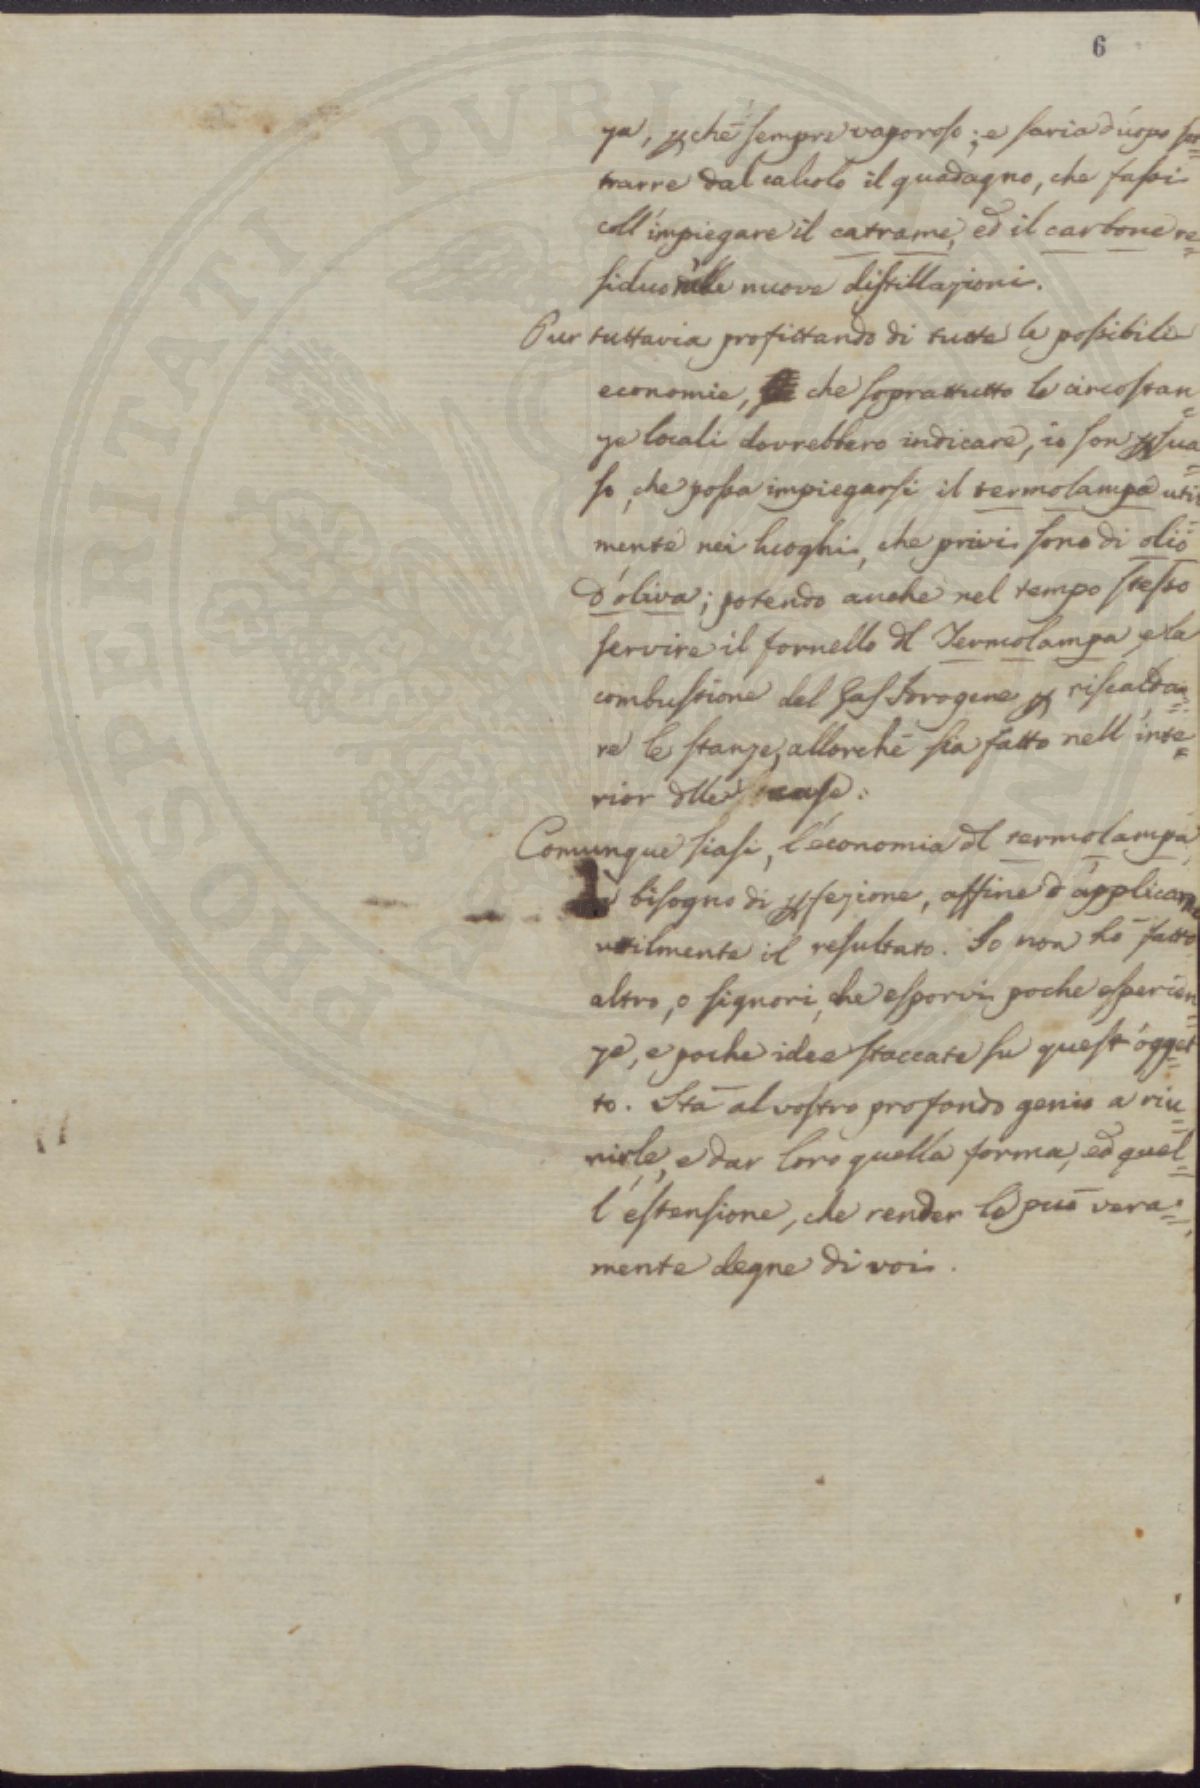 6
za, pchè sempre vaporoso; e saria d'uopo sot=
trarre dal calcolo il guadagno, che fassi
coll'impiegare il catrame, ed il carbone re=
siduo nelle nuove distillazioni.
Pur tuttavia profittando di tutte le possibili
economie, che soprattutto le circostan=
ze locali dovrebbero indicare, io son psua=
so, che possa impiegarsi il termolampa util
mente nei luoghi, che privi sono di olio
d'oliva; potendo anche nel tempo stesso
servire il fornello dl Termolampa, e la
combustione del Gas Idrogene p riscalda=
re le stanze, allorchè sia fatto nell'inte=
rior dlle case.
Comunque siasi, l'economia dl termolampa
bisogno di pfezione, affine d'applicarne
utilmente il resultato. Io non ho fatto
altro, o signori, che esporvi poche esperien=
ze, e poche idee staccate su quest'ogget=
to. Stà al vostro profondo genio a riu=
nirle, e dar loro quella forma, ed quel=
l'estensione, che render le può vera=
mente degne di voi.
PROSPERITATI PVBL